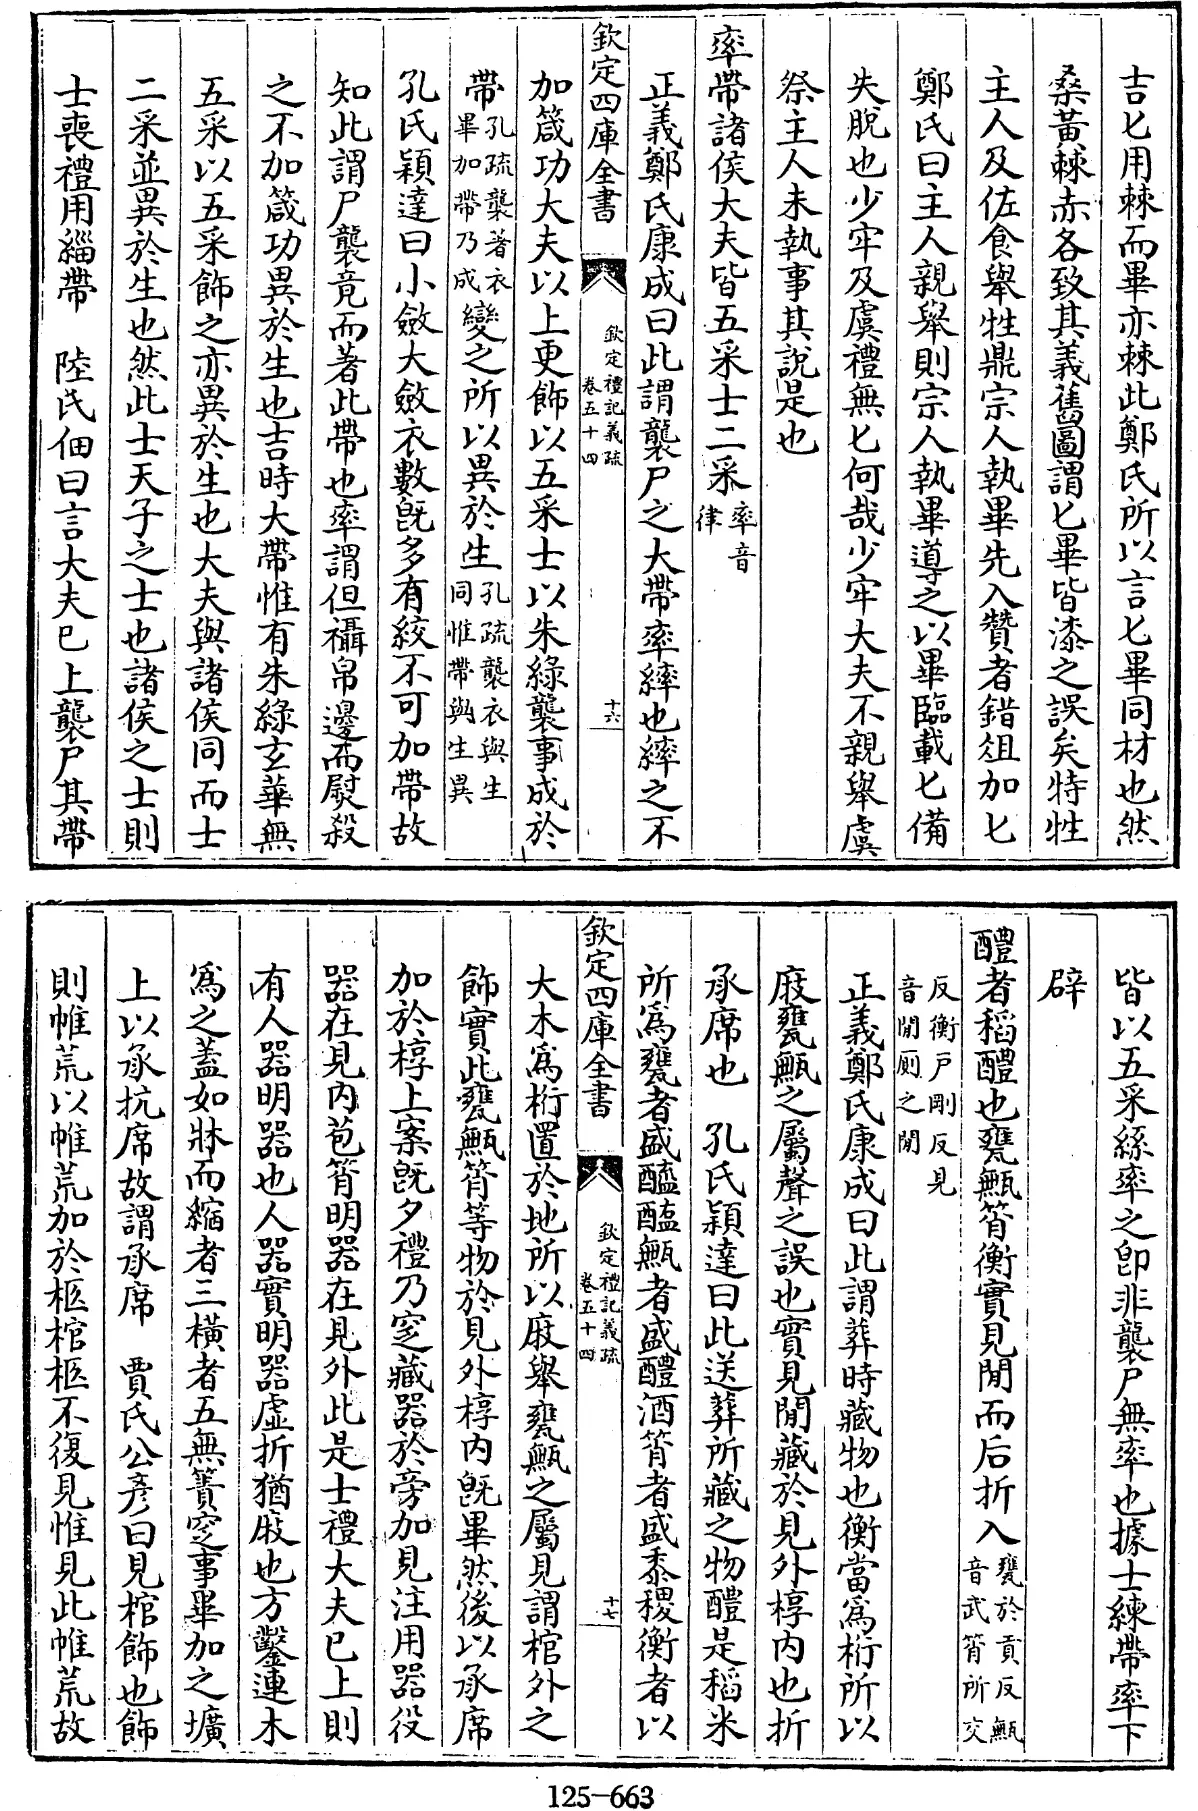 吉匕用棘而畢亦棘此鄭氏所以言匕畢同材也然
桑黃棘赤各致其義舊圖謂匕畢皆漆之誤矣特牲
主人及佐食舉牲鼎宗人執畢先入贊者錯俎加匕
鄭氏曰主人親舉則宗人執畢導之以畢臨載匕備
失脫也少牢及虞禮無匕何哉少牢大夫不親舉虞
祭主人未執事其說是也
率帶諸侯大夫皆五采士二采率音
律
正義鄭氏康成曰此謂襲尸之大帶率繂也繂之不
欽定四庫全書
欽定禮記義疏
卷五十四
十六
加箴功大夫以上更飾以五采士以朱綠襲事成於
帶孔疏襲著衣
畢加帶乃成變之所以異於生孔疏襲衣與生
同惟帶與生異
孔氏穎達曰小斂大斂衣數旣多有絞不可加帶故
知此謂尸襲竟而著此帶也率謂但襵帛邊而熨殺
之不加箴功異於生也吉時大帶惟有朱綠玄華無
五采以五采飾之亦異於生也大夫與諸侯同而士
二采並異於生也然此士天子之士也諸侯之士則
士喪禮用緇帶 陸氏佃曰言大夫巳上襲尸其帶
皆以五采絲率之卽非襲尸無率也據士練帶率下
辟
醴者稻醴也甕甒筲衡實見閒而后折入甕於貢反甒
音武筲所交
反衡戶剛反見
音閒廁之閒
正義鄭氏康成曰此謂葬時藏物也衡當爲桁所以
庪甕甒之屬聲之誤也實見閒藏於見外椁內也折
承席也 孔氏穎達曰此送葬所藏之物醴是稻米
所爲甕者盛醯醢甒者盛醴酒筲者盛黍稷衡者以
欽定四庫全書
欽定禮記義疏
卷五十四
十七
大木爲桁置於地所以庪舉甕甒之屬見謂棺外之
飾實此甕甒筲等物於見外椁內旣畢然後以承席
加於椁上案旣夕禮乃窆藏器於旁加見注用器役
器在見內苞筲明器在見外此是士禮大夫巳上則
有人器明器也人器實明器虛折猶庪也方鑿連木
爲之蓋如牀而縮者三橫者五無簀窆事畢加之壙
上以承抗席故謂承席 賈氏公彥曰見棺飾也飾
則帷荒以帷荒加於柩棺柩不復見惟見此帷荒故
125-663